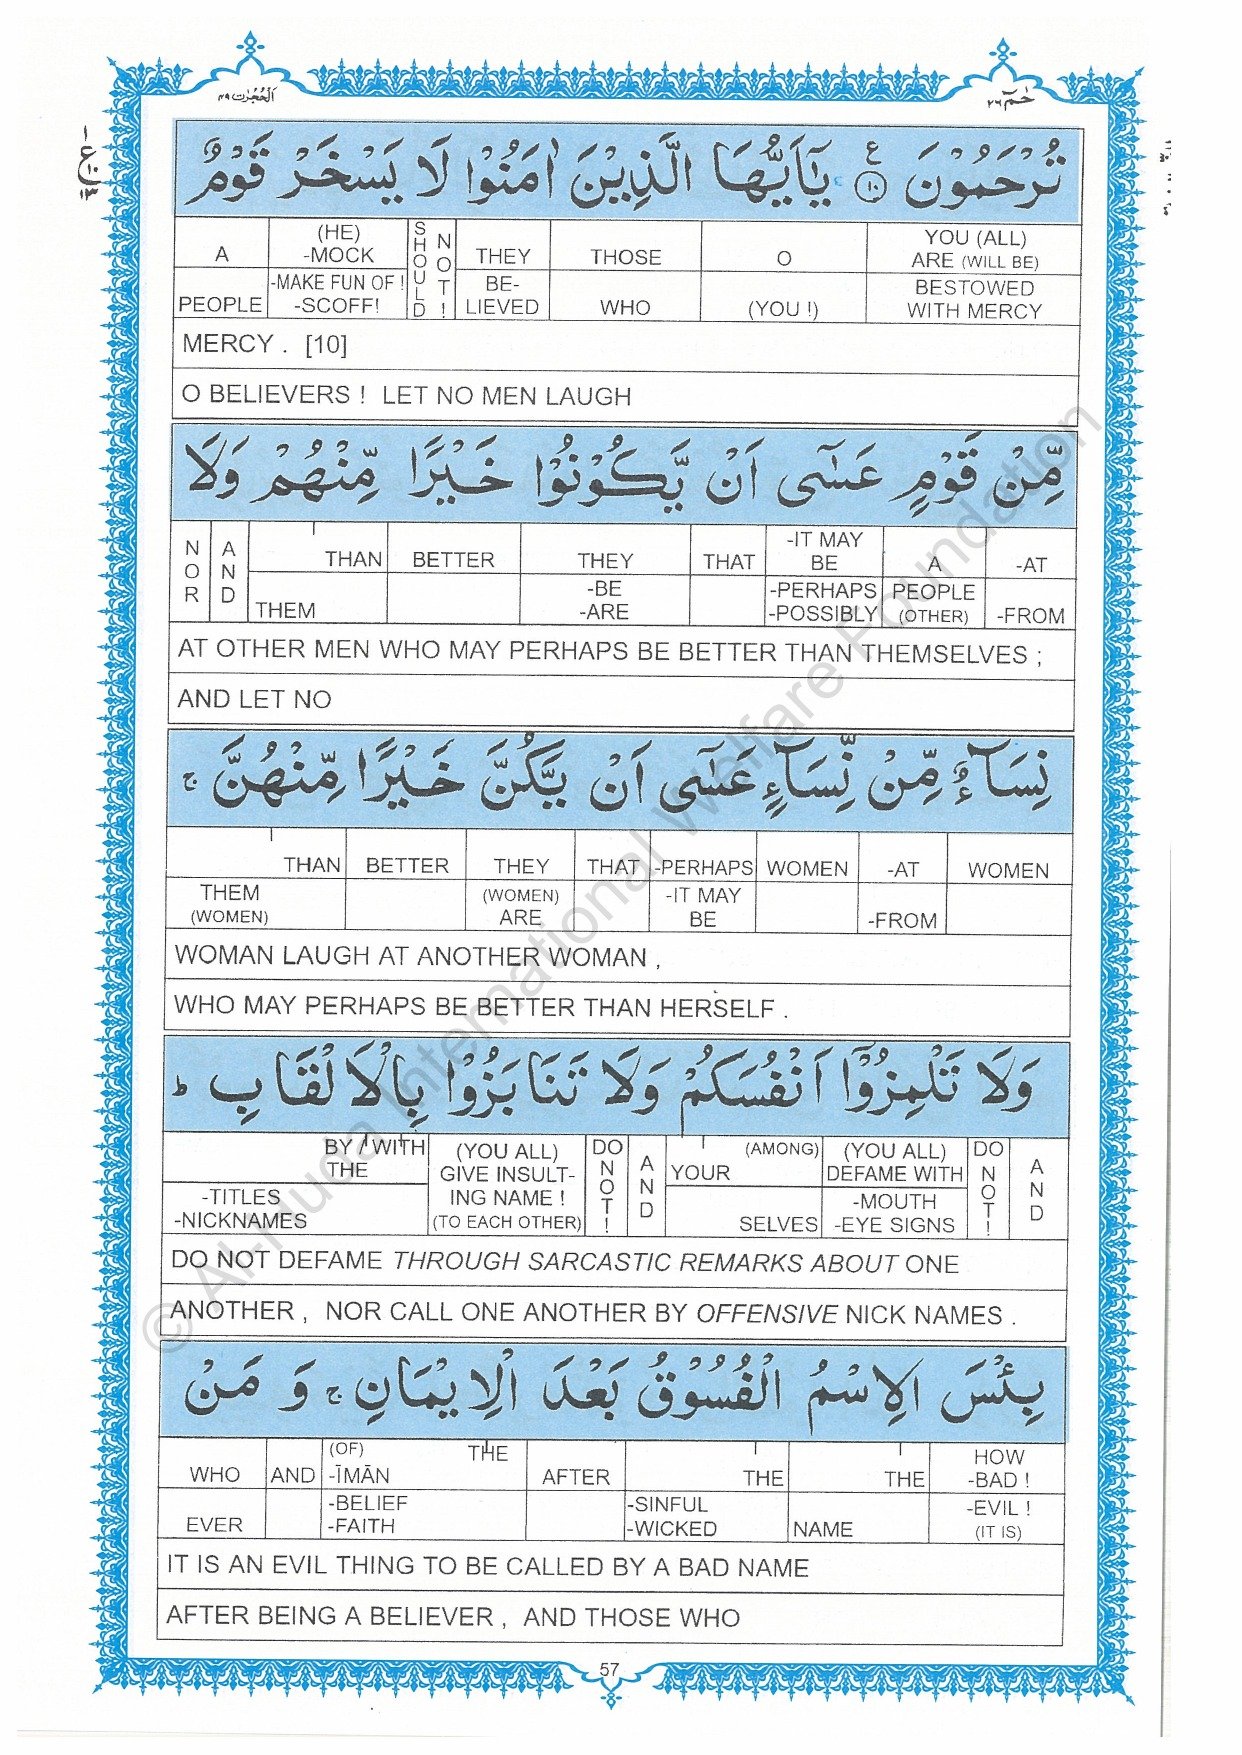 اَلْحُجُرٰت ٤٩
حٰمٓ ٢٦
تُرْحَمُوْنَ ۝١٠ ع يٰۤاَيُّهَا الَّذِيْنَ اٰمَنُوْا لَا يَسْخَرْ قَوْمٌ
A PEOPLE | (HE) -MOCK -MAKE FUN OF ! -SCOFF! | SHOULD NOT ! | THEY BE- LIEVED | THOSE WHO | O (YOU !) | YOU (ALL) ARE (WILL BE) BESTOWED WITH MERCY
MERCY . [10]
O BELIEVERS ! LET NO MEN LAUGH
مِّنْ قَوْمٍ عَسٰۤى اَنْ يَّكُوْنُوْا خَيْرًا مِّنْهُمْ وَلَا
NOR | AND | THAN THEM | BETTER | THEY -BE -ARE | THAT | -IT MAY BE -PERHAPS -POSSIBLY | A PEOPLE (OTHER) | -AT -FROM
AT OTHER MEN WHO MAY PERHAPS BE BETTER THAN THEMSELVES ;
AND LET NO
نِسَآءٌ مِّنْ نِّسَآءٍ عَسٰۤى اَنْ يَّكُنَّ خَيْرًا مِّنْهُنَّ ج
THAN THEM (WOMEN) | BETTER | THEY (WOMEN) ARE | THAT | -PERHAPS -IT MAY BE | WOMEN | -AT -FROM | WOMEN
WOMAN LAUGH AT ANOTHER WOMAN ,
WHO MAY PERHAPS BE BETTER THAN HERSELF .
وَلَا تَلْمِزُوْۤا اَنْفُسَكُمْ وَلَا تَنَابَزُوْا بِالْاَلْقَابِ ط
BY / WITH THE -TITLES -NICKNAMES | (YOU ALL) GIVE INSULT- ING NAME ! (TO EACH OTHER) | DO NOT ! | AND | (AMONG) YOUR SELVES | (YOU ALL) DEFAME WITH -MOUTH -EYE SIGNS | DO NOT ! | AND
DO NOT DEFAME THROUGH SARCASTIC REMARKS ABOUT ONE
ANOTHER , NOR CALL ONE ANOTHER BY OFFENSIVE NICK NAMES .
بِئْسَ الِاسْمُ الْفُسُوْقُ بَعْدَ الْاِيْمَانِ ج وَ مَنْ
WHO EVER | AND | (OF) THE -ĪMĀN -BELIEF -FAITH | AFTER | THE -SINFUL -WICKED | THE NAME | HOW -BAD ! -EVIL ! (IT IS)
IT IS AN EVIL THING TO BE CALLED BY A BAD NAME
AFTER BEING A BELIEVER , AND THOSE WHO
57
© Al-Huda International Welfare Foundation